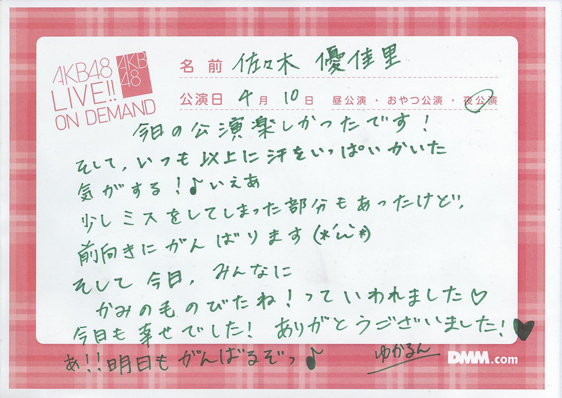 AKB48
LIVE!!
ON DEMAND
AKB
48
名前 佐々木 優佳里
公演日 4月 10日 昼公演・おやつ公演・夜公演
今日の公演楽しかったです!
そして、いつも以上に汗をいっぱいかいた
気がする!♪いえあ
少しミスをしてしまった部分もあったけど、
前向きにがんばります(*´ω`*)
そして今日、みんなに
かみの毛のびたね!っていわれました♡
今日も幸せでした! ありがとうございました!♥
あ!!明日もがんばるぞっ♪
ゆかるん
DMM.com